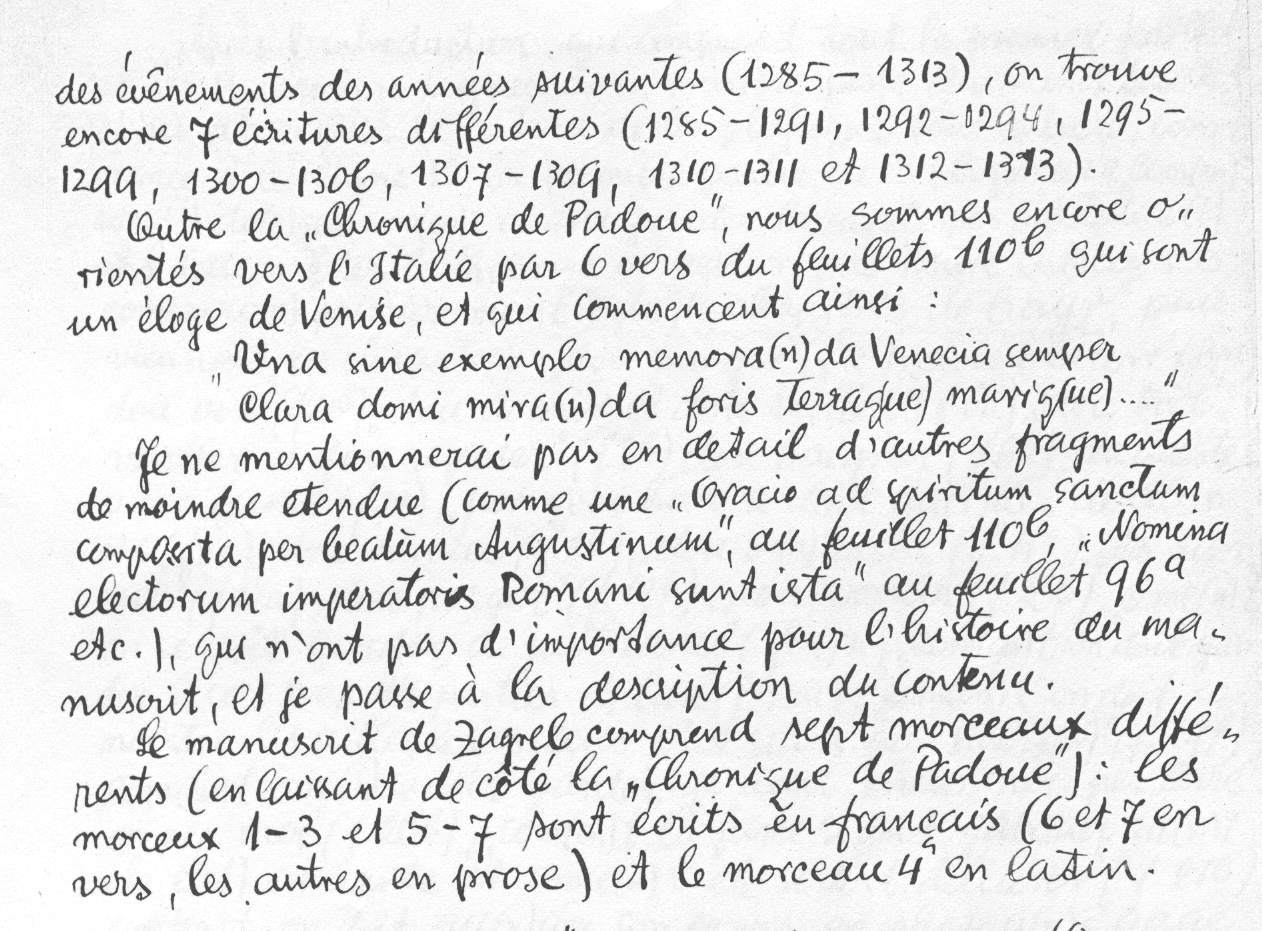 des évênements des années suivantes (1285 – 1313), on trouve
encore 7 écritures différentes (1285 – 1291, 1292 – 1294, 1295 –
1299, 1300 – 1306, 1307 – 1309, 1310 – 1311 et 1312 – 1313).
Outre la „Chronique de Padoue", nous sommes encore o„
rientés vers l'Italie par 6 vers du feuillets 110b qui sont
un éloge de Venise, et qui commencent ainsi :
Una sine exemplo memora(n)da Venecia semper
" Clara domi mira(n)da foris Terraq(ue) mariq(ue)..."
Je ne mentionnerai pas en detail d'autres fragments
de moindre étendue (comme une „Oracio ad spiritum sanctum
composita per beatum Augustinum", au feuillet 110b, „Nomina
electorum imperatoris Romani sunt ista" au feuillet 96a
etc.), qui n'ont pas d'importance pour l'histoire du ma„
nuscrit, et je passe à la description du contenu.
Le manuscrit de Zagreb comprend sept morceaux diffé„
rents (en laissant de côté la „Chronique de Padoue") : les
morceux 1–3 et 5–7 sont écrits en français (6 et 7 en
vers, les autres en prose) et le morceau 4a en latin.